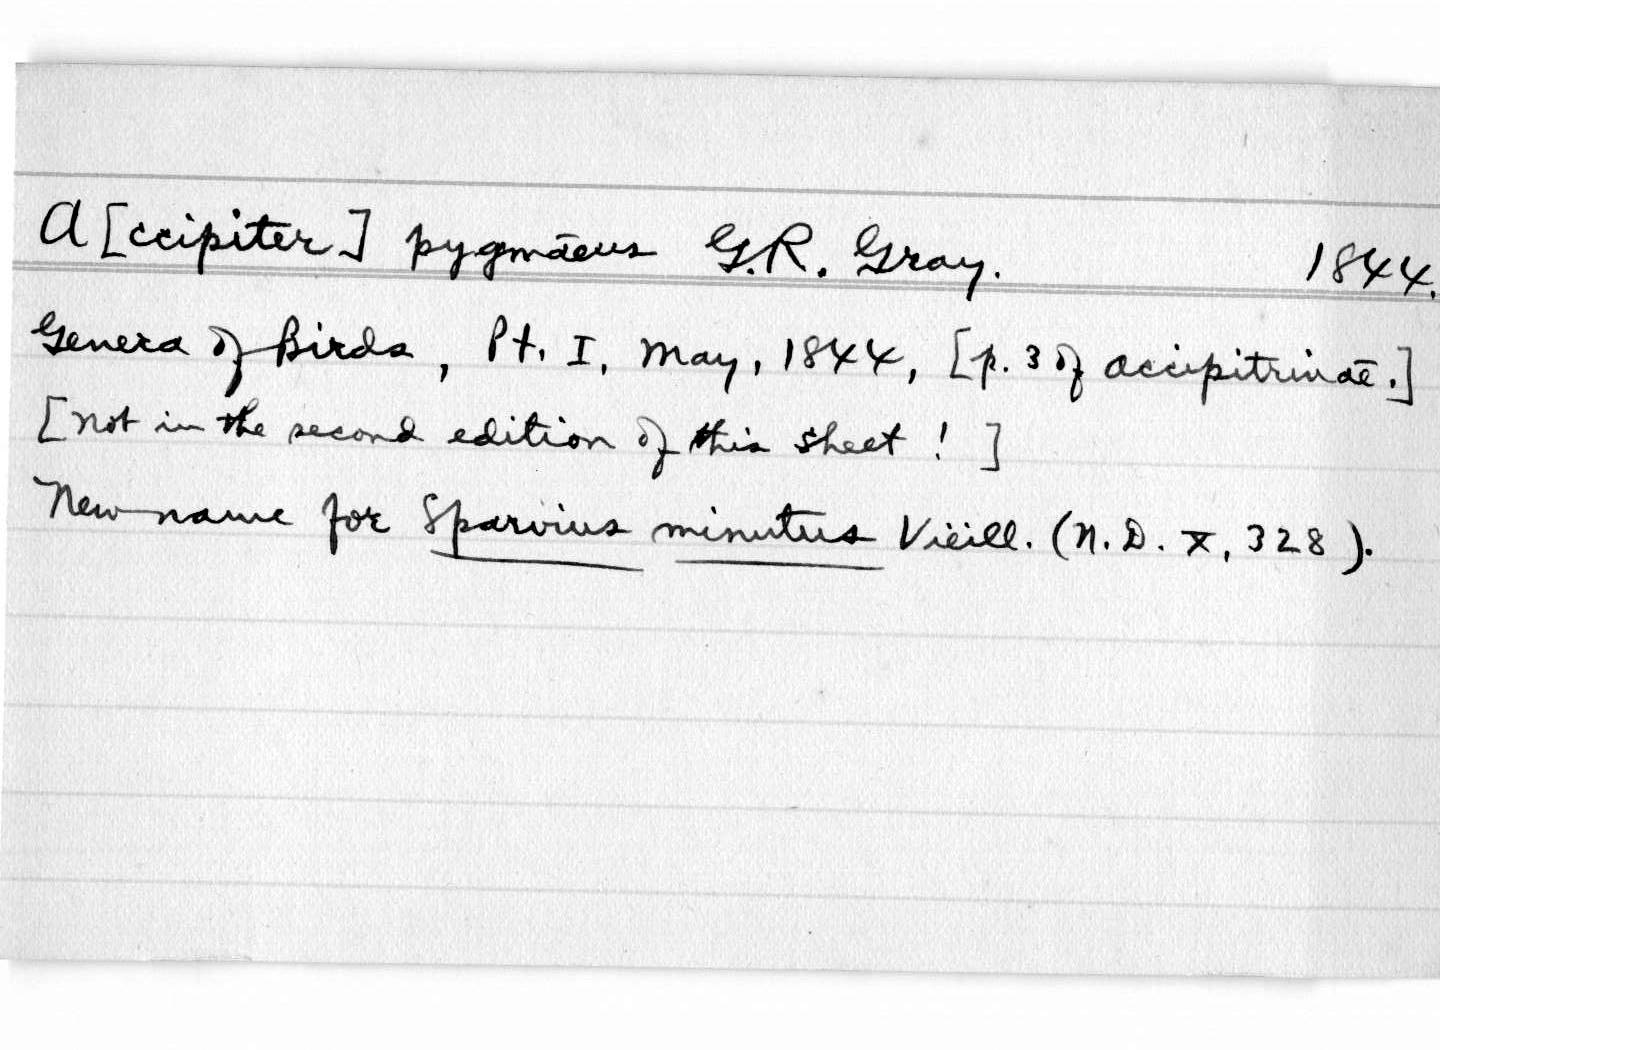 A[ccipiter] pygmāeus G.R. Gray. 1844.
Genera of Birds, Pt. I, May, 1844, [p. 3 of Accipitrināe.]
[Not in the second edition of this sheet! ]
New name for Sparvius minutus Vieill. (N.D. X, 328).